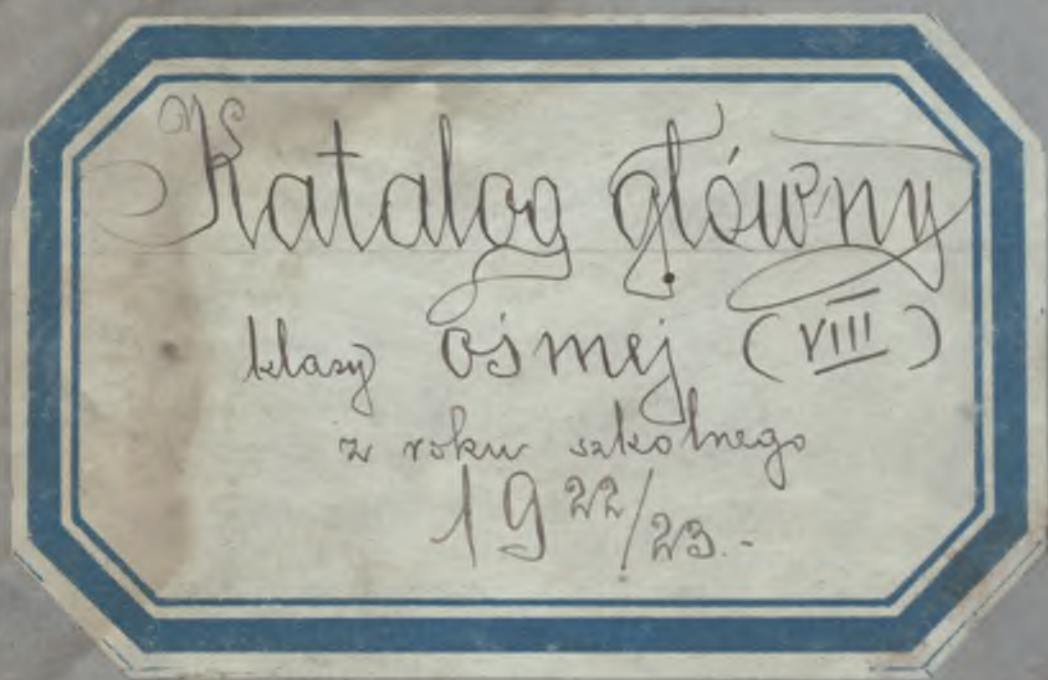 Katalog główny
klasy ósmej (VIII)
z roku szkolnego
1922/23.-